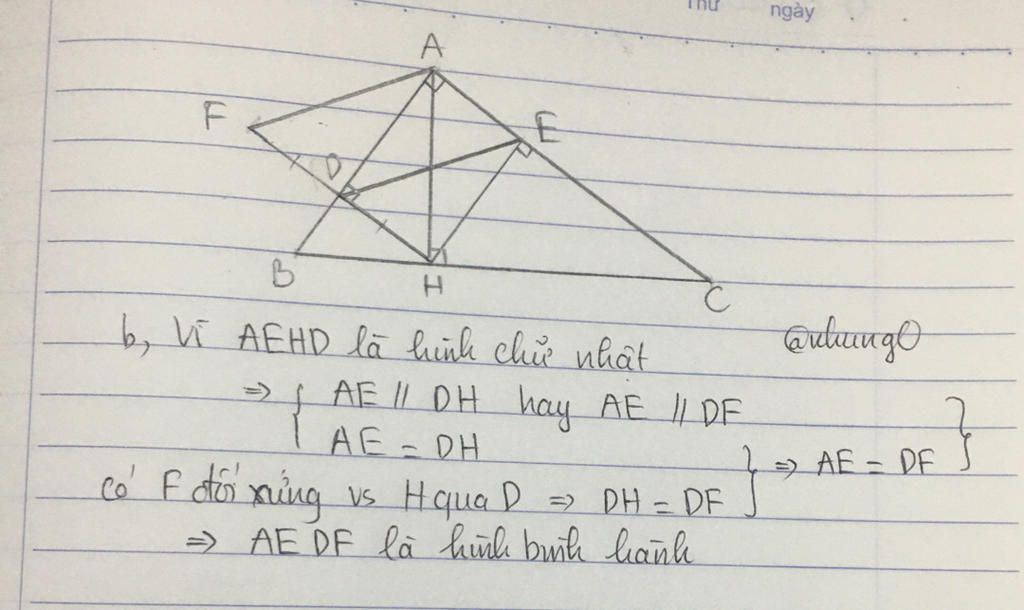 Thứ ngày
A
F
E
D
B
H
C
b, Vì AEHD là hình chữ nhật
@nhung0
=> { AE // DH hay AE // DF
AE = DH
} => AE = DF }
có F đối xứng vs H qua D => DH = DF
=> AEDF là hình bình hành